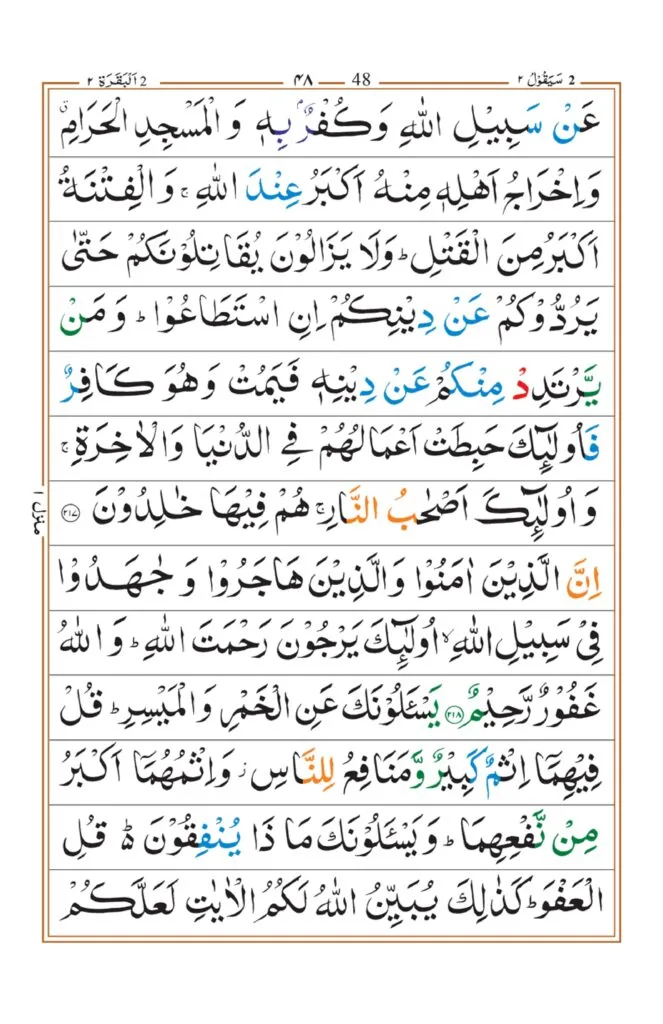 2 سَيَقُوْلُ ٢ 48 ۴۸ 2 اَلْبَقَرَة ٢
عَنْ سَبِيْلِ اللّٰهِ وَكُفْرٌۢ بِهٖ وَ الْمَسْجِدِ الْحَرَامِ ۗ
وَاِخْرَاجُ اَهْلِهٖ مِنْهُ اَكْبَرُ عِنْدَ اللّٰهِ ۚ وَ الْفِتْنَةُ
اَكْبَرُ مِنَ الْقَتْلِ ؕ وَلَا يَزَالُوْنَ يُقَاتِلُوْنَكُمْ حَتّٰى
يَرُدُّوْكُمْ عَنْ دِيْنِكُمْ اِنِ اسْتَطَاعُوْا ؕ وَ مَنْ
يَّرْتَدِدْ مِنْكُمْ عَنْ دِيْنِهٖ فَيَمُتْ وَ هُوَ كَافِرٌ
فَاُولٰٓئِكَ حَبِطَتْ اَعْمَالُهُمْ فِي الدُّنْيَا وَ الْاٰخِرَةِ ۚ
وَ اُولٰٓئِكَ اَصْحٰبُ النَّارِ ۚ هُمْ فِيْهَا خٰلِدُوْنَ ٢١٧
اِنَّ الَّذِيْنَ اٰمَنُوْا وَ الَّذِيْنَ هَاجَرُوْا وَ جٰهَدُوْا
فِيْ سَبِيْلِ اللّٰهِ ۙ اُولٰٓئِكَ يَرْجُوْنَ رَحْمَتَ اللّٰهِ ؕ وَ اللّٰهُ
غَفُوْرٌ رَّحِيْمٌ ٢١٨ يَسْـَٔلُوْنَكَ عَنِ الْخَمْرِ وَ الْمَيْسِرِ ؕ قُلْ
فِيْهِمَاۤ اِثْمٌ كَبِيْرٌ وَّ مَنَافِعُ لِلنَّاسِ ؗ وَ اِثْمُهُمَاۤ اَكْبَرُ
مِنْ نَّفْعِهِمَا ؕ وَ يَسْـَٔلُوْنَكَ مَا ذَا يُنْفِقُوْنَ ؕ۬ قُلِ
الْعَفْوَ ؕ كَذٰلِكَ يُبَيِّنُ اللّٰهُ لَكُمُ الْاٰيٰتِ لَعَلَّكُمْ
منزل ١